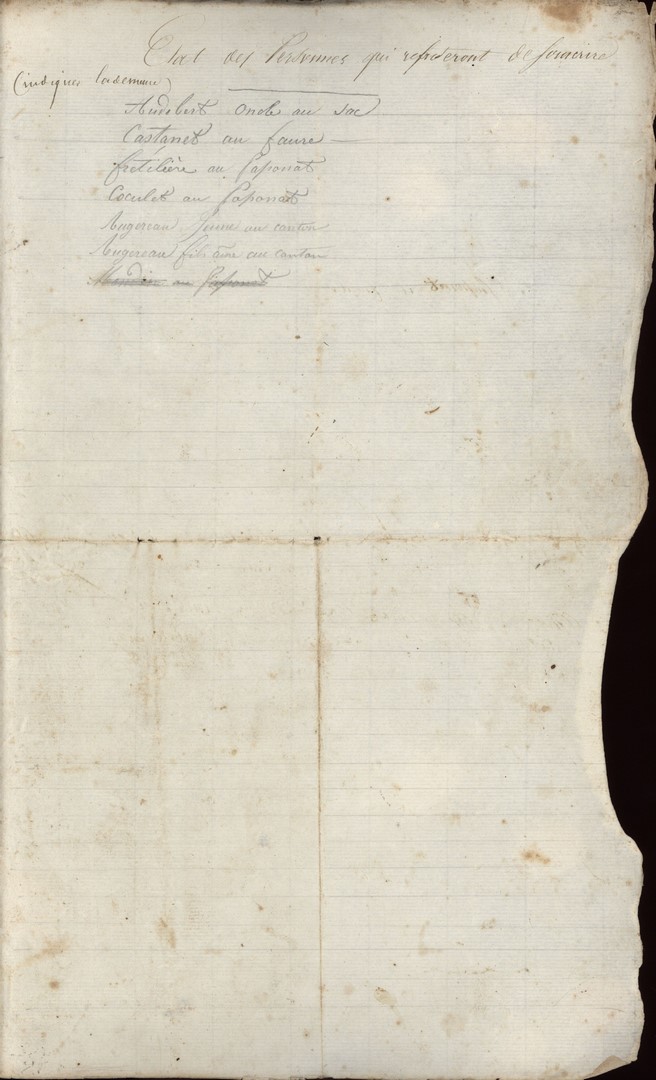 Etat des Personnes qui refuseront de souscrire
(indiquer la demeure)
Audebert oncle au sac
Castanet au faure
fretilière au Caponat
Coculet au Caponat
Augereau jeune au canton
Augereau fils ainé au canton
au Caponat